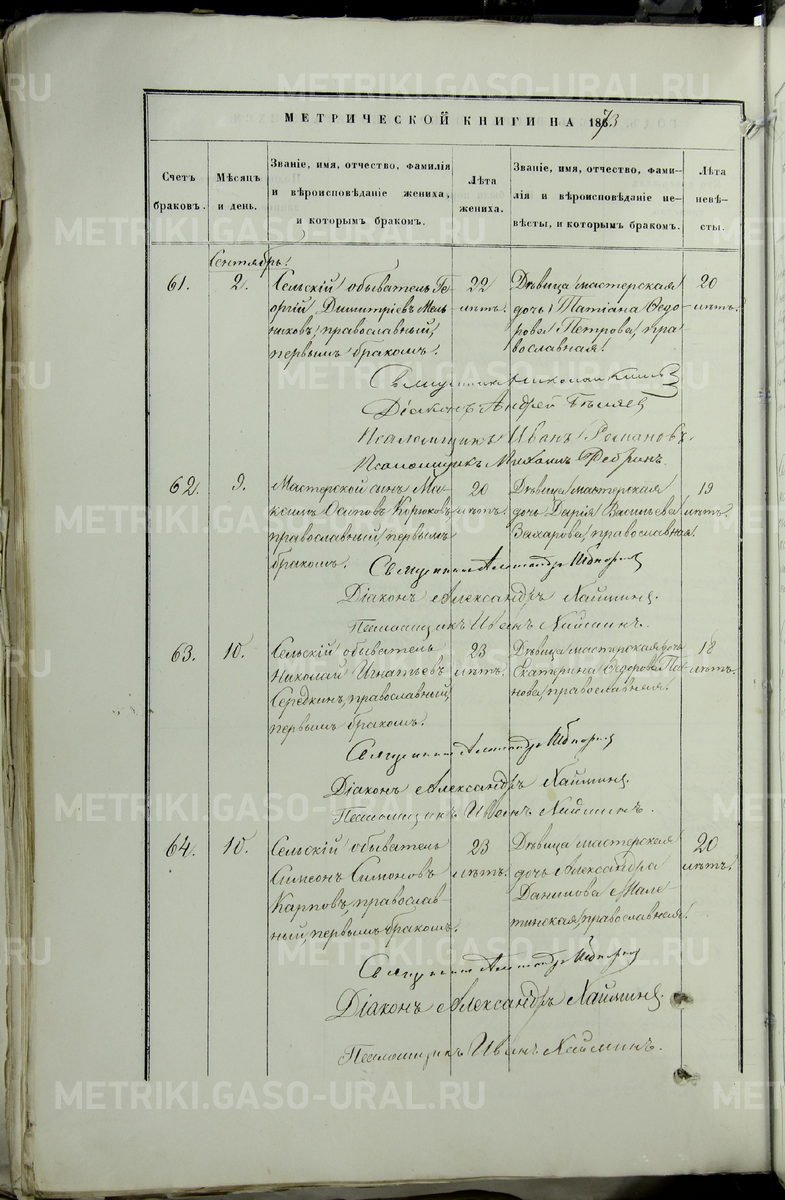 МЕТРИЧЕСКОЙ КНИГИ НА 1873
Счетъ браковъ.
Мѣсяцъ и день.
Званіе, имя, отчество, фамилія
и вѣроисповѣданіе жениха,
и которымъ бракомъ.
Лѣта жениха.
Званіе, имя, отчество, фами-
лія и вѣроисповѣданіе не-
вѣсты, и которымъ бракомъ.
Лѣта невѣ-
сты.
Сентябрь
61. 2. Сельскій обыватель Ге- 22 Дѣвица мастерская 20
оргій Димитріевъ Мель- лѣтъ. дочь Татіана Ѳедо- лѣтъ.
никовъ, православный, рова Петрова, пра-
первымъ бракомъ. вославная.
Священникъ Николай
Діаконъ Андрей Бѣляев
Псаломщикъ Иванъ Романовъ.
Псаломщикъ Михаилъ
62. 9. Мастерской сынъ Ма- 20 Дѣвица мастерская 19
ксимъ Осиповъ Корюковъ лѣтъ. дочь Дарія Васильева лѣтъ.
православный, первымъ Захарова, православная.
бракомъ. Священникъ Александръ
Діаконъ Александръ Хлынинъ.
Псаломщикъ Иванъ
63. 10. Сельскій обыватель 23 Дѣвица мастерская дочь 18
Николай Игнатьевъ лѣтъ. Екатерина Ѳедорова Па- лѣтъ.
Середкинъ, православный, нова, православная.
первымъ бракомъ.
Священникъ Александръ
Діаконъ Александръ
Псаломщикъ Иванъ
64. 10. Сельскій обыватель 23 Дѣвица мастерская 20
Симеонъ Симоновъ лѣтъ. дочь Александра лѣтъ.
Карповъ, православ- Данилова Мале-
ный, первымъ бракомъ. тинская, православная.
Священникъ Александръ
Діаконъ Александръ
Псаломщикъ Иванъ
METRIKI.GASO-URAL.RU